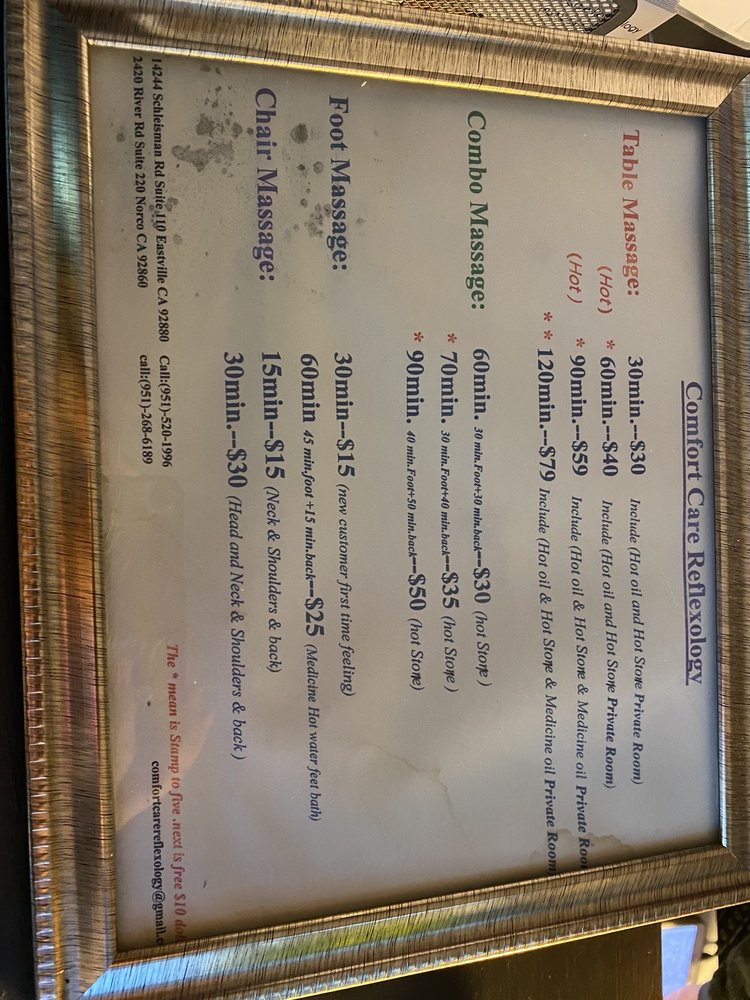 Comfort Care Reflexology
Table Massage: 30min.--$30 Include (Hot oil and Hot Stone Private Room)
(Hot) * 60min.--$40 Include (Hot oil and Hot Stone Private Room)
(Hot) * 90min.--$59 Include (Hot oil & Hot Stone & Medicine oil Private Room
* * 120min.--$79 Include (Hot oil & Hot Stone & Medicine oil Private Room
Combo Massage: 60min. 30 min.Foot+30 min.back--$30 (hot Stone )
* 70min. 30 min.Foot+40 min.back--$35 (hot Stone )
* 90min. 40 min.Foot+50 min.back--$50 (hot Stone)
Foot Massage: 30min--$15 (new customer first time feeling)
60min 45 min.foot +15 min.back--$25 (Medicine Hot water feet bath)
Chair Massage: 15min--$15 (Neck & Shoulders & back)
30min.--$30 (Head and Neck & Shoulders & back)
The * mean is Stamp to five .next is free $10
14244 Schleisman Rd Suite 110 Eastville CA 92880 Call:(951)-520-1996
comfortcarereflexology@gmail.c
2420 River Rd Suite 220 Norco CA 92860 call:(951)-268-6189
ogy